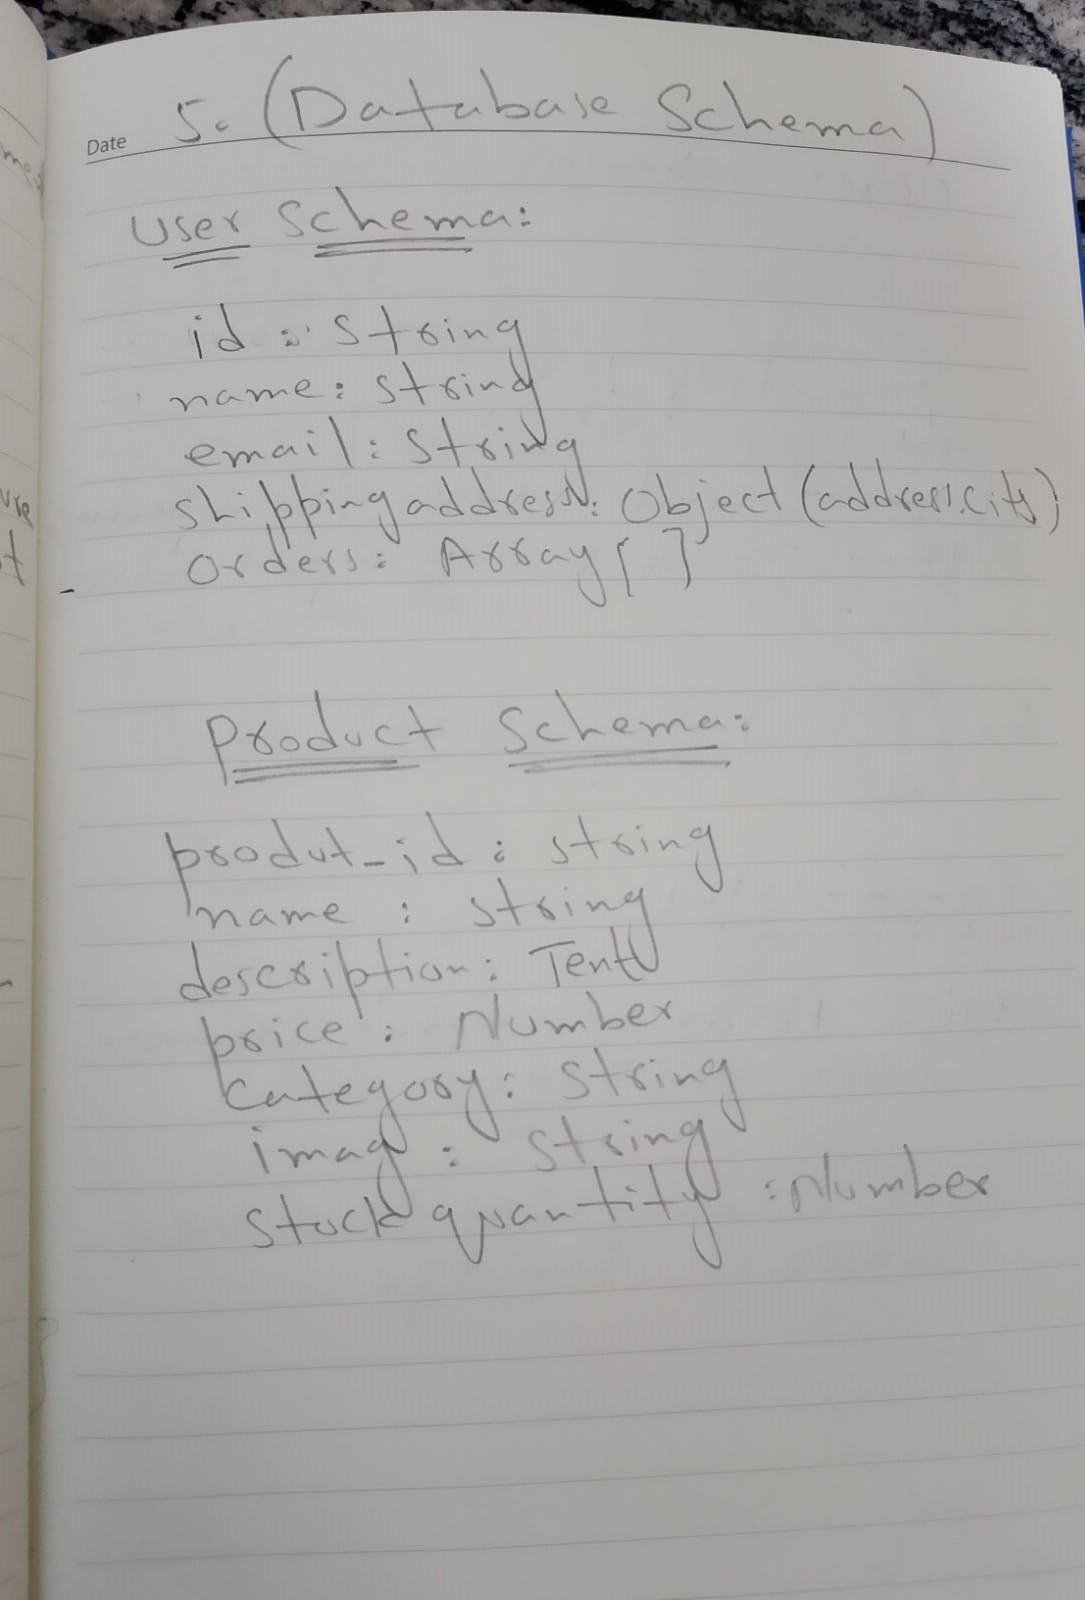 Date 5. (Database Schema)
User Schema:
id : string
name: string
email: string
shipping address: Object (address, city)
orders: Array [ ]
Product Schema:
produt_id : string
name : string
description: Text
price : Number
Category: string
imag : string
stock quantity : Number